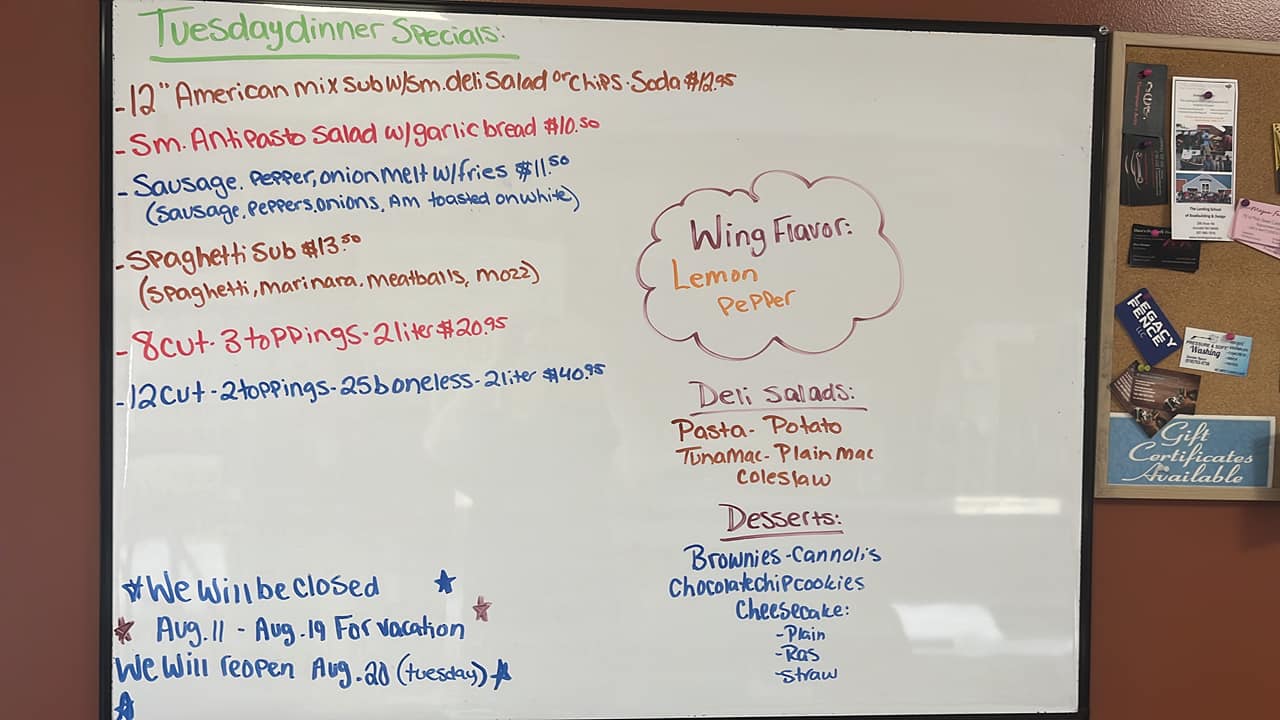 Tuesday dinner Specials:
- 12" American mix Sub w/sm. deli Salad or chips. Soda $12.95
- Sm. Antipasto Salad w/garlic bread $10.50
- Sausage. Pepper, onion melt w/fries $11.50
(Sausage, Peppers, onions, Am toasted on white)
- Spaghetti Sub $13.50
(Spaghetti, marinara. meatballs, mozz)
- 8cut - 3 toppings - 2 liter $20.95
- 12 cut - 2 toppings - 25 boneless - 2 liter $40.95
We will be closed
Aug. 11 - Aug. 19 For vacation
We will reopen Aug. 20 (tuesday)
Wing Flavor:
Lemon
Pepper
Deli Salads:
Pasta - Potato
Tunamac - Plain mac
Coleslaw
Desserts:
Brownies - Cannolis
Chocolatechip cookies
Cheesecake:
- Plain
- Ras
- Straw
LEGACY
FENCE
LLC
PRESSURE & SOFT
Washing
The Landing School
Gift
Certificates
Available